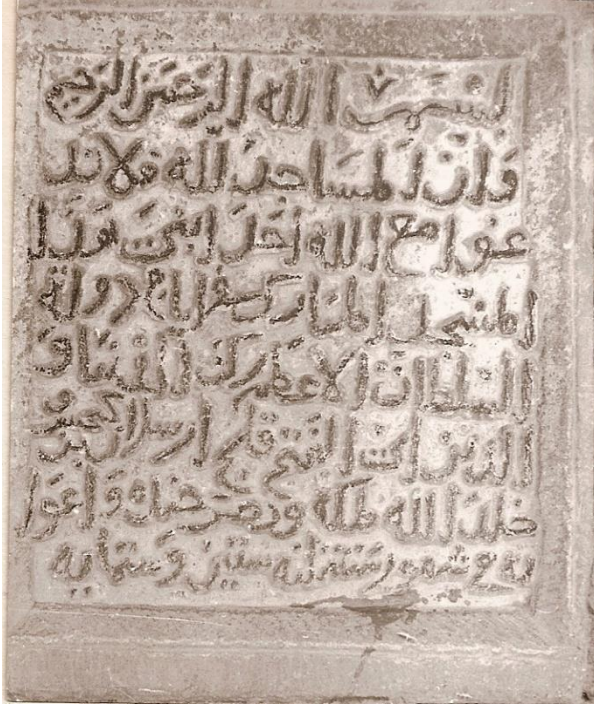 بسم الله الرحمن الرحيم
وان المساجد لله فلا تد
عوا مع الله احدا بنى هذا
المسجد المبارك فى ايام دولة
السلطان الاعظم ركن الدنيا و
الدين ابى الفتح قلج ارسلان بن كيخسرو
خلد الله ملكه ونصر جنده واعوا
نه فى شهور سنة ستين وستمايه